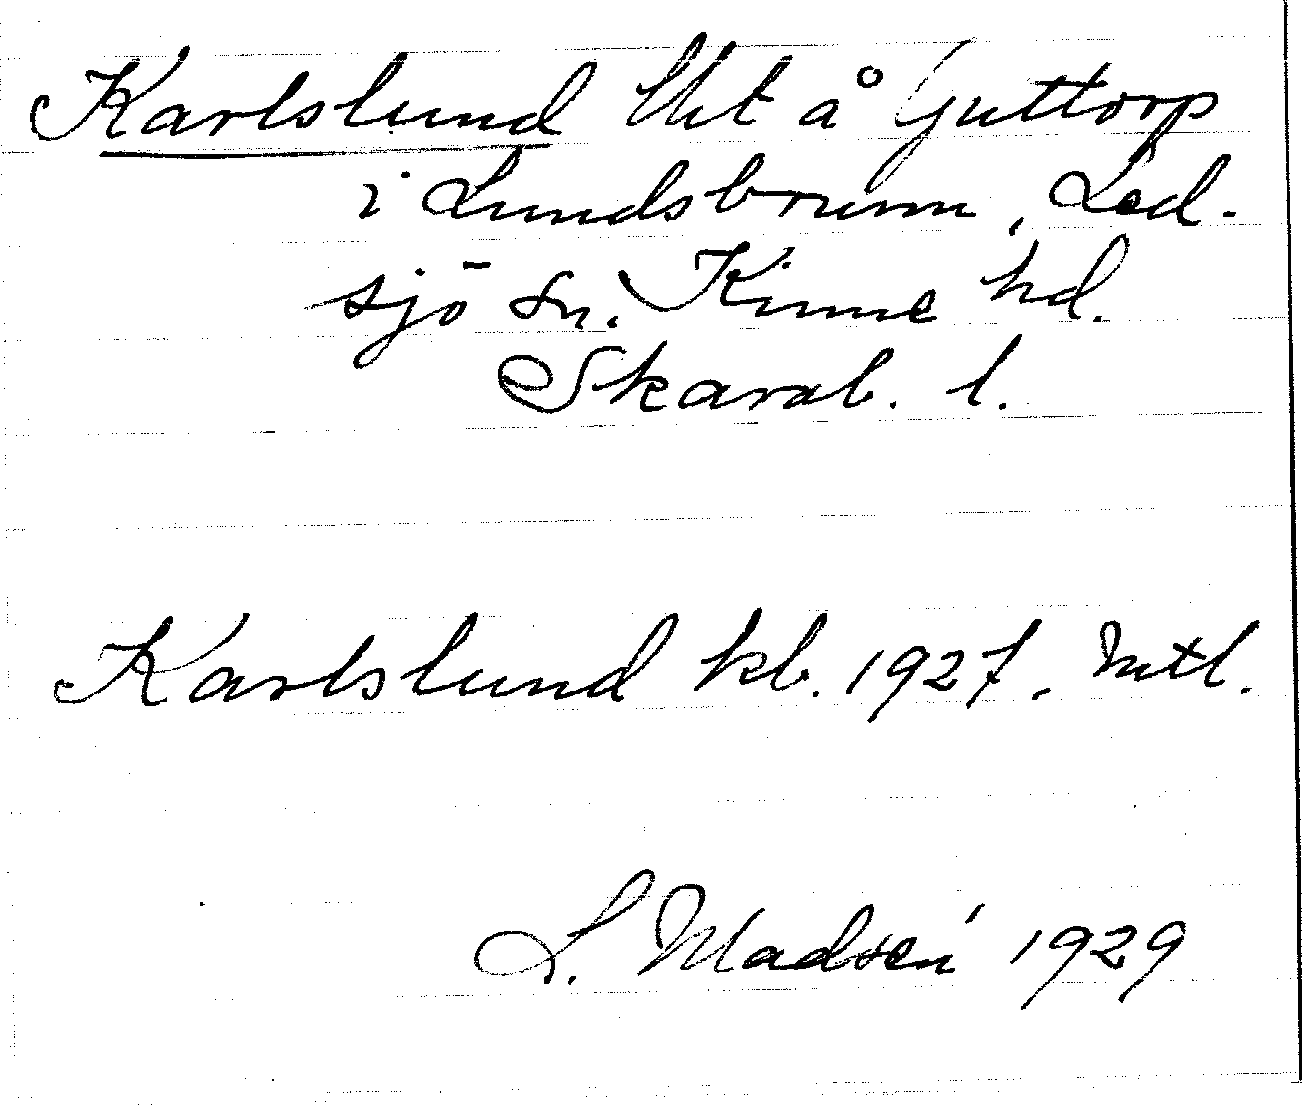 Karlslund lht å Guttorp
i Lundsbrunn, Led-
sjö sn. Kinne hd.
Skarab. l.
Karlslund kb. 1927. Mtl.
L. Madsén 1929